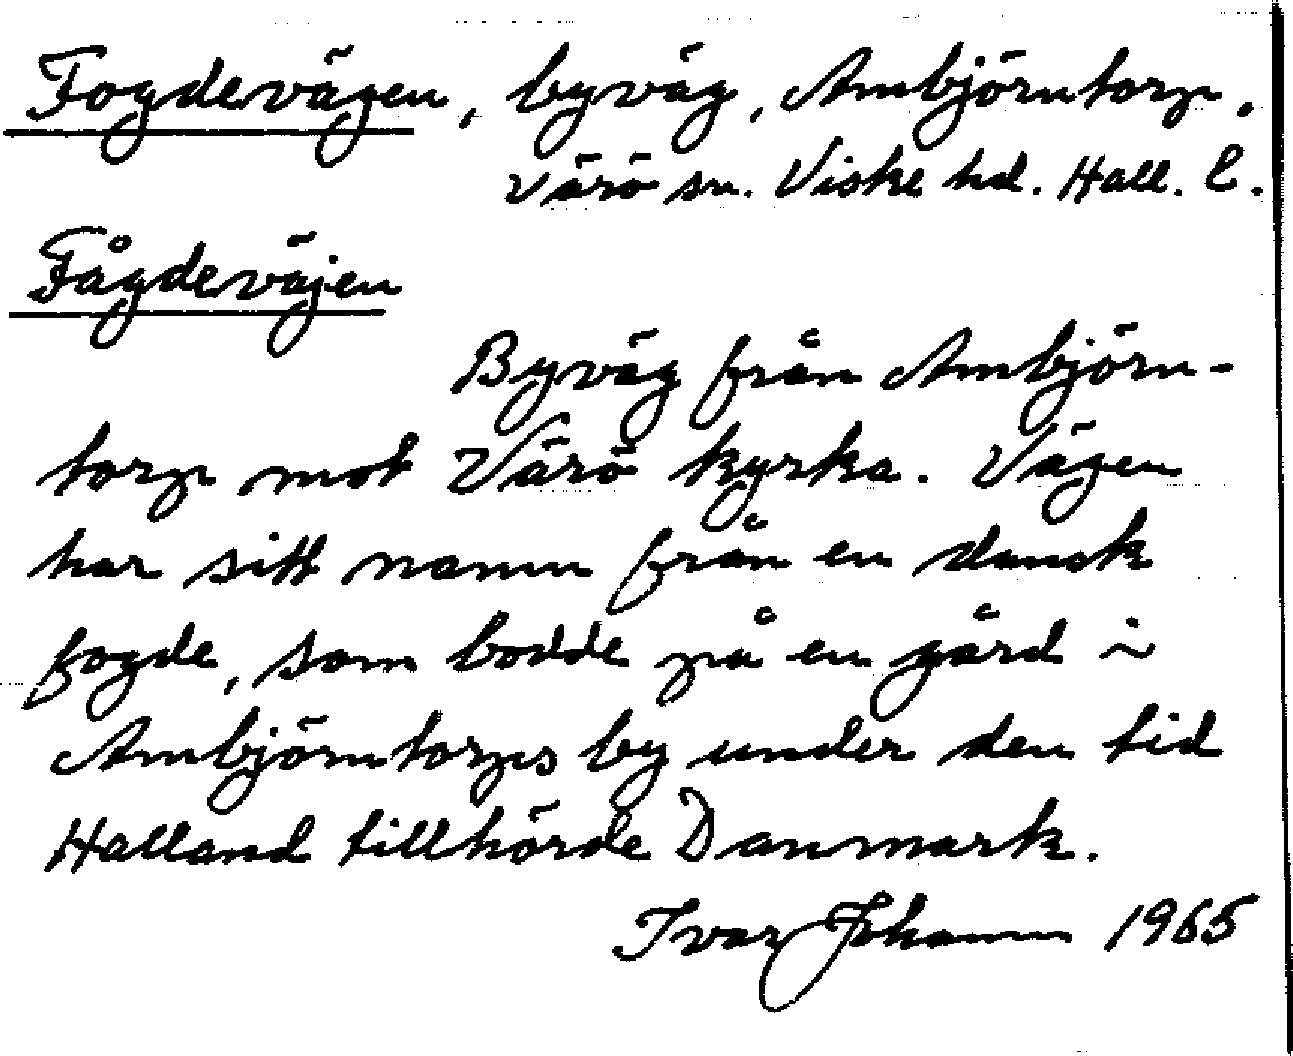 Fogdevägen, byväg, Ambjörntorp.
Värö sn. Viske hd. Hall. l.
Fågdeväjen
Byväg från Ambjörn-
torp mot Värö kyrka. Vägen
har sitt namn från en dansk
fogde, som bodde på en gård i
Ambjörntorps by under den tid
Halland tillhörde Danmark.
Ivar Johanson 1965